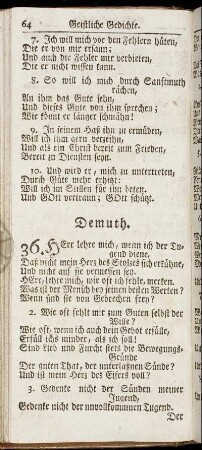 64 Geistliche Gedichte.
7. Ich will mich vor den Fehlern hüten,
Die er von mir ersann;
Und auch die Fehler mir verbieten,
Die er nicht wissen kann.
8. So will ich mich durch Sanftmuth
rächen,
An ihm das Gute sehn,
Und dieses Gute von ihm sprechen;
Wie könnt er länger schmähn!
9. In seinem Haß ihn zu ermüden,
Will ich ihm gern verzeihn,
Und als ein Christ bereit zum Frieden,
Bereit zu Diensten seyn.
10. Und wird er, mich zu untertreten,
Durch Güte mehr erhitzt:
Will ich im Stillen für ihn beten,
Und GOtt vertraun; GOtt schützt.
Demuth.
36. HErr lehre mich, wenn ich der Tu-
gend diene,
Daß nicht mein Herz des Stolzes sich erkühne,
Und nicht auf sie vermessen sey.
HErr, lehre mich, wie oft ich fehle, merken.
Was ist der Mensch bey seinen besten Werken?
Wenn sind sie von Gebrechen frey?
2. Wie oft fehlt mir zum Guten selbst der
Wille?
Wie oft, wenn ich auch dein Gebot erfülle,
Erfüll ichs minder, als ich soll!
Sind Lieb und Furcht stets die Bewegungs-
Gründe
Der guten That, der unterlaßnen Sünde?
Und ist mein Herz des Eifers voll?
3. Gedenke nicht der Sünden meiner
Jugend,
Gedenke nicht der unvollkommnen Tugend.
Der